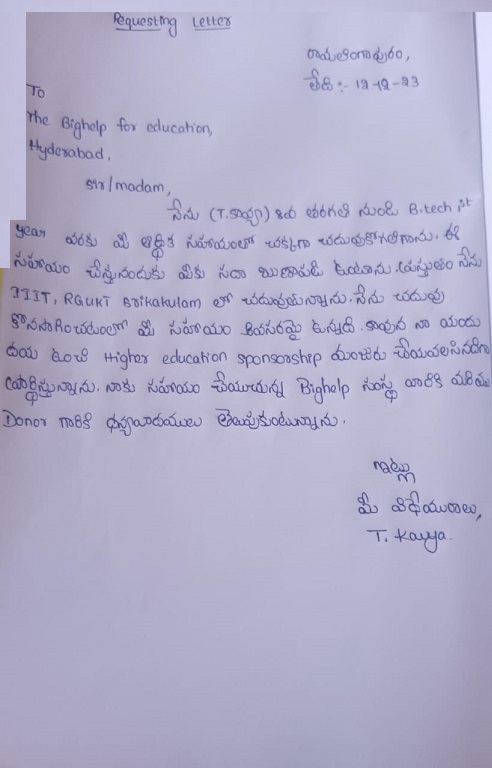 Requesting Letter
రామలింగాపురం,
తేది :- 12-12-23
To
The Bighelp for education,
Hyderabad,
sir/madam,
నేను (T.కావ్యా) 8వ తరగతి నుండి B.tech 1st
year వరకు మీ ఆర్థిక సహాయంలో చక్కగా చదువుకోగలిగాను. ఈ
సహాయం చేస్తునందుకు మీకు సదా ఋణపడి ఉంటాను. ప్రస్తుతం నేను
IIIT, RGUKT Srikakulam లో చదువుతున్నాను. నేను చదువు
కొనసాగించడంలో మీ సహాయం అవసరమై ఉన్నది. కావున నా యందు
దయ ఉంచి Higher education sponsorship మంజూరు చేయవలసినదిగా
ప్రార్థిస్తున్నాను. నాకు సహాయం చేయుచున్న Bighelp సంస్థ వారికి మరియు
Donor గారికి ధన్యవాదములు తెలుపుకుంటున్నాను.
ఇట్లు
మీ విధేయురాలు,
T. Kavya.